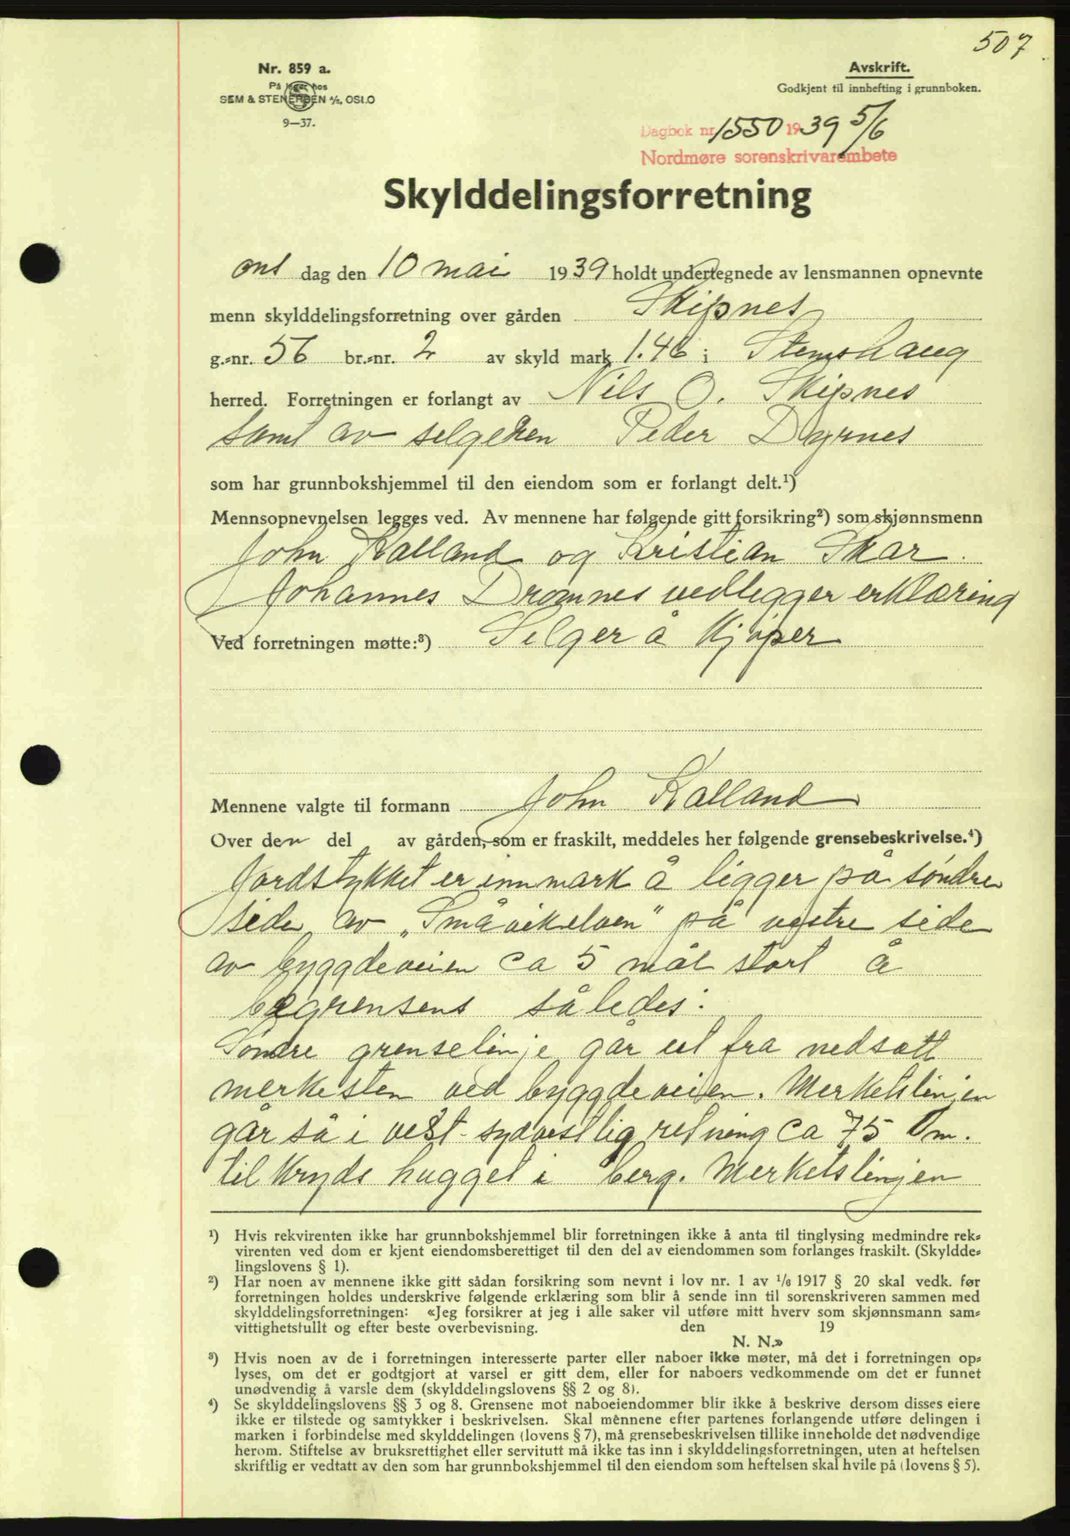 507
Nr. 859 a.
På lager hos
SEM & STENERSEN A/S, OSLO
9—37.
Avskrift.
Godkjent til innhefting i grunnboken.
Dagbok nr. 1550 1939 5/6
Nordmøre sorenskrivarembete
Skylddelingsforretning
ons dag den 10 mai 1939 holdt undertegnede av lensmannen opnevnte
menn skylddelingsforretning over gården Skipnes
g.-nr. 56 br.-nr. 2 av skyld mark 1.46 i Stemshaug
herred. Forretningen er forlangt av Nils O. Skipnes
samt av selgeren Peder Dyrnes
som har grunnbokshjemmel til den eiendom som er forlangt delt.¹)
Mennsopnevnelsen legges ved. Av mennene har følgende gitt forsikring²) som skjønnsmenn
John Kalland og Kristian Skar.
Johannes Dromnes vedlegger erklæring
Ved forretningen møtte:³) Selger å Kjøper
Mennene valgte til formann John Kalland
Over den del av gården, som er fraskilt, meddeles her følgende grensebeskrivelse.⁴)
Jordstykket er innmark å ligger på søndre
side av „Småvikelven" på vestre side
av byggdeveien ca 5 mål stort å
begrenses således:
Søndre grenselinje går ut fra nedsatt
merkesten ved byggdeveien. Merkelinjen
går så i vest-sydvestlig retning ca 75 m.
til kryds hugget i berg. Merketslinjen
¹) Hvis rekvirenten ikke har grunnbokshjemmel blir forretningen ikke å anta til tinglysing medmindre rek-
virenten ved dom er kjent eiendomsberettiget til den del av eiendommen som forlanges fraskilt. (Skyldde-
lingslovens § 1).
²) Har noen av mennene ikke gitt sådan forsikring som nevnt i lov nr. 1 av 1/6 1917 § 20 skal vedk. før
forretningen holdes underskrive følgende erklæring som blir å sende inn til sorenskriveren sammen med
skylddelingsforretningen: «Jeg forsikrer at jeg i alle saker vil utføre mitt hverv som skjønnsmann sam-
vittighetsfullt og efter beste overbevisning. den 19
N. N.»
³) Hvis noen av de i forretningen interesserte parter eller naboer ikke møter, må det i forretningen op-
lyses, om det er godtgjort at varsel er gitt dem, eller for naboers vedkommende om det er funnet
unødvendig å varsle dem (skylddelingslovens §§ 2 og 8).
⁴) Se skylddelingslovens §§ 3 og 8. Grensene mot naboeiendommer blir ikke å beskrive dersom disses eiere
ikke er tilstede og samtykker i beskrivelsen. Skal mennene efter partenes forlangende utføre delingen i
marken i forbindelse med skylddelingen (lovens § 7), må grensebeskrivelsen tillike inneholde det nødvendige
herom. Stiftelse av bruksrettighet eller servitutt må ikke tas inn i skylddelingsforretningen, uten at heftelsen
skriftlig er vedtatt av den som har grunnbokshjemmel til den eiendom som heftelsen skal hvile på (lovens § 5).